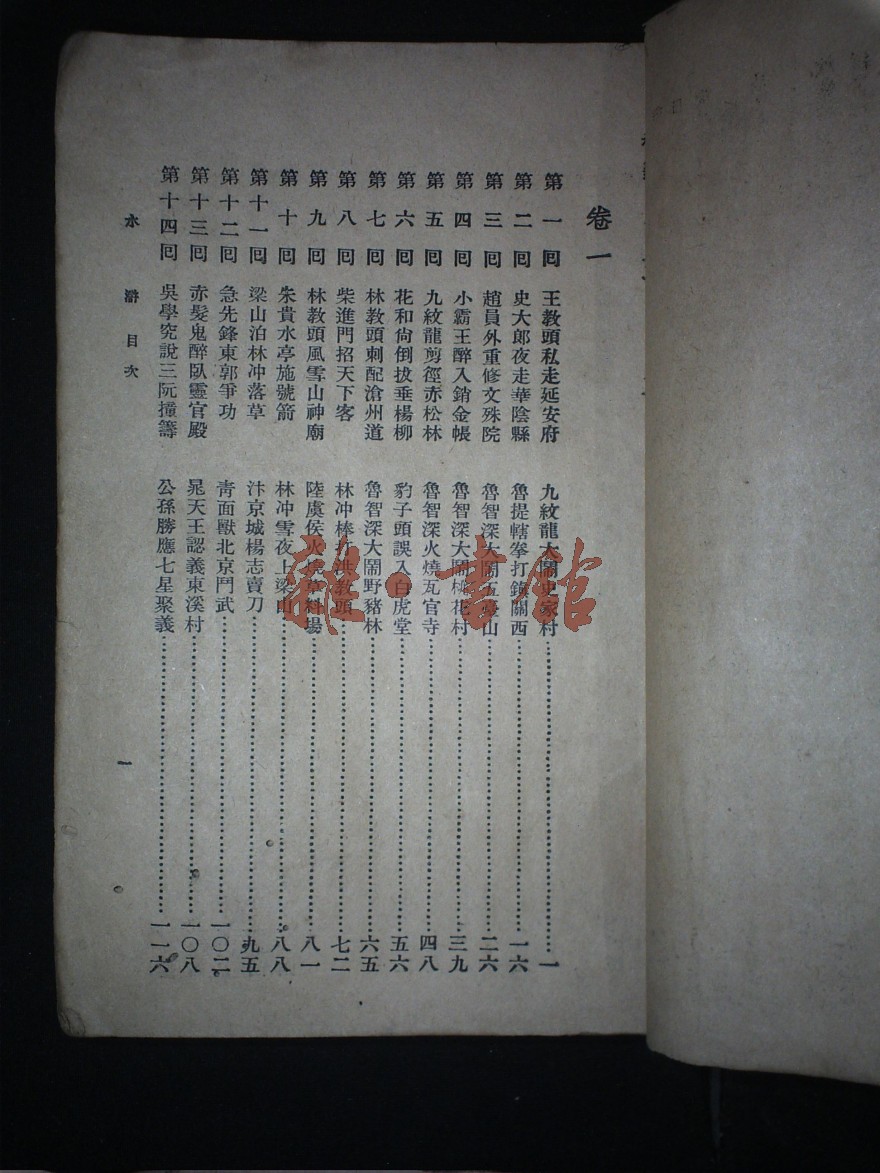 卷一
第一回 王教頭私走延安府 九紋龍大鬧史家村 一
第二回 史大郎夜走華陰縣 魯提轄拳打鎮關西 一六
第三回 趙員外重修文殊院 魯智深大鬧五臺山 二六
第四回 小霸王醉入銷金帳 魯智深大鬧桃花村 三九
第五回 九紋龍剪徑赤松林 魯智深火燒瓦官寺 四八
第六回 花和尙倒拔垂楊柳 豹子頭誤入白虎堂 五六
第七回 林教頭刺配滄州道 魯智深大鬧野豬林 六五
第八回 柴進門招天下客 林冲棒打洪教頭 七二
第九回 林教頭風雪山神廟 陸虞侯火燒草料場 八一
第十回 朱貴水亭施號箭 林冲雪夜上梁山 八八
第十一回 梁山泊林冲落草 汴京城楊志賣刀 九五
第十二回 急先鋒東郭爭功 靑面獸北京鬥武 一〇二
第十三回 赤髮鬼醉臥靈官殿 晁天王認義東溪村 一〇八
第十四回 吳學究說三阮撞籌 公孫勝應七星聚義 一一六
水滸目次
一
雜·書館